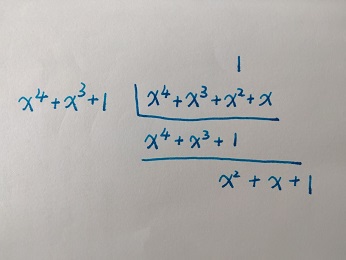 1
x⁴+x³+1 x⁴+x³+x²+x
x⁴+x³+1
x²+x+1